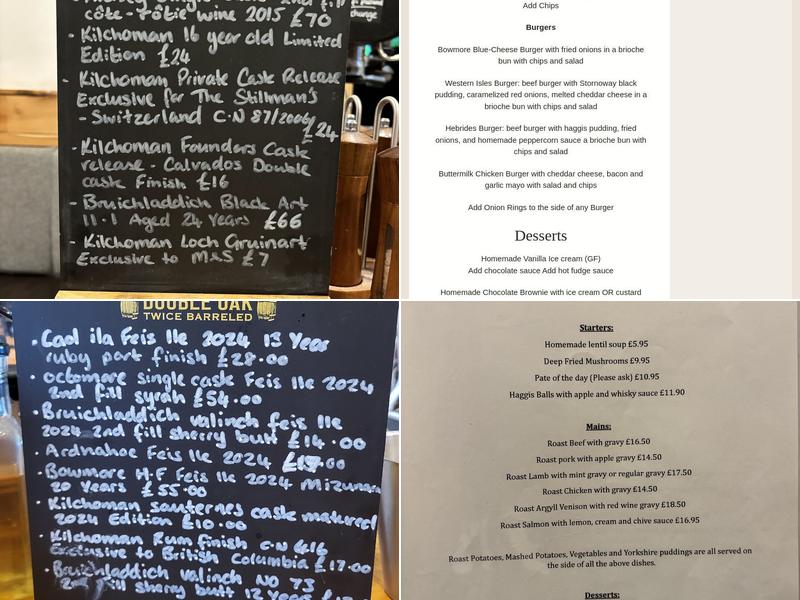 côte-rôtie wine 2015 £70
- Kilchoman 16 year old Limited
Edition £24
- Kilchoman Private Cask Release
Exclusive for The Stillman's
- Switzerland C.N 87/2006
£24
- Kilchoman Founders Cask
release - Calvados Double
cask Finish £16
- Bruichladdich Black Art
11.1 Aged 24 Years £66
- Kilchoman Loch Gruinart
Exclusive to M&S £7
change
Add Chips
Burgers
Bowmore Blue-Cheese Burger with fried onions in a brioche
bun with chips and salad
Western Isles Burger: beef burger with Stornoway black
pudding, caramelized red onions, melted cheddar cheese in a
brioche bun with chips and salad
Hebrides Burger: beef burger with haggis pudding, fried
onions, and homemade peppercorn sauce a brioche bun with
chips and salad
Buttermilk Chicken Burger with cheddar cheese, bacon and
garlic mayo with salad and chips
Add Onion Rings to the side of any Burger
Desserts
Homemade Vanilla Ice cream (GF)
Add chocolate sauce Add hot fudge sauce
Homemade Chocolate Brownie with ice cream OR custard
DOUBLE OAK
TWICE BARRELED
• Caol ila Feis Ile 2024 13 Year
ruby port finish £28.00
• octomore single cask Feis Ile 2024
2nd fill syrah £54.00
• Bruichladdich valinch feis Ile
2024 2nd fill sherry butt £14.00
• Ardnahoe Feis Ile 2024 £17.00
• Bowmore H.F Feis Ile 2024 Mizunara
20 Years £55.00
• Kilchoman sauternes cask matured
2024 Edition £10.00
• Kilchoman Rum Finish C.N 616
Exclusive to British Columbia £17.00
• Bruichladdich valinch NO 73
2nd fill sherry butt 12 Years
Starters:
Homemade lentil soup £5.95
Deep Fried Mushrooms £9.95
Pate of the day (Please ask) £10.95
Haggis Balls with apple and whisky sauce £11.90
Mains:
Roast Beef with gravy £16.50
Roast pork with apple gravy £14.50
Roast Lamb with mint gravy or regular gravy £17.50
Roast Chicken with gravy £14.50
Roast Argyll Venison with red wine gravy £18.50
Roast Salmon with lemon, cream and chive sauce £16.95
Roast Potatoes, Mashed Potatoes, Vegetables and Yorkshire puddings are all served on
the side of all the above dishes.
Desserts: